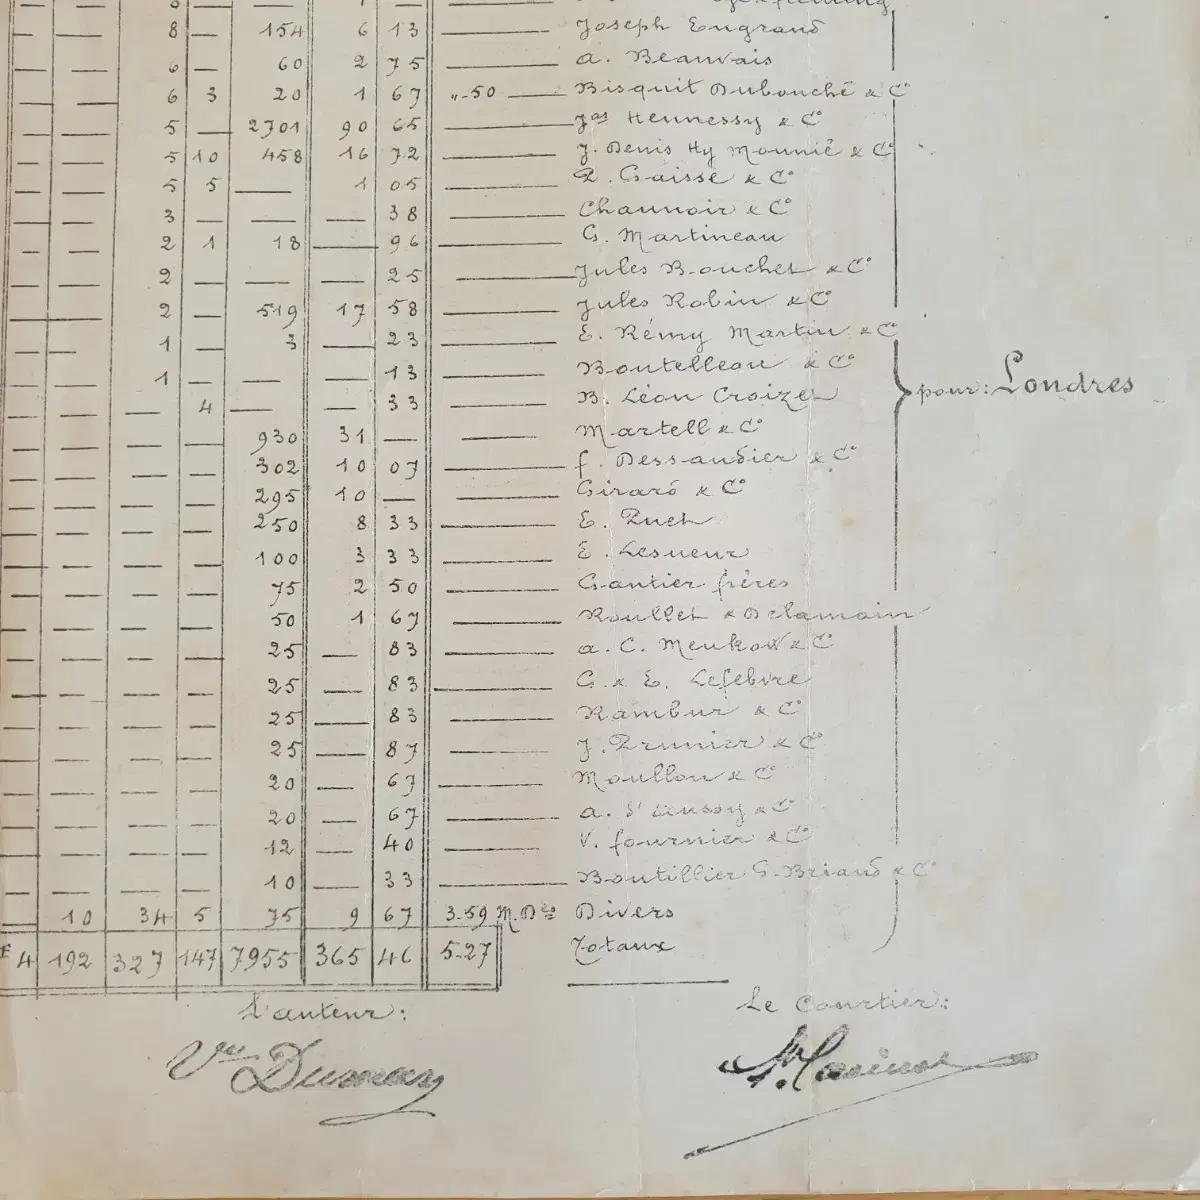 8 — 154 6 13 — Joseph Engrand
6 — 60 2 75 — A. Beauvais
6 3 20 1 67 „-50 — Bisquit Dubouché & Cº
5 — 2701 90 65 — Jas Hennessy & Cº
5 10 458 16 72 — J. Denis Hy Mounié & Cº
5 5 — 1 05 — P. Gaisse & Cº
3 — — — 38 — Chaunoir & Cº
2 1 18 — 96 — G. Martineau
2 — — — 25 — Jules Bouchet & Cº
2 — 519 17 58 — Jules Robin & Cº
1 — 3 — 23 — E. Rémy Martin & Cº
1 — — — 13 — Boutelleau & Cº
— 4 — — 33 — B. Léon Croizet
pour: Londres
— — 930 31 — — Martell & Cº
— — 302 10 07 — F. Dessandier & Cº
— — 295 10 — — Girard & Cº
— — 250 8 33 — E. Puet
— — 100 3 33 — E. Lesueur
— — 75 2 50 — Gantier frères
— — 50 1 67 — Roullet & Delamain
— — 25 — 83 — A. C. Meukow & Cº
— — 25 — 83 — G. & E. Lefebvre
— — 25 — 83 — Rambur & Cº
— — 25 — 87 — J. Prunier & Cº
— — 20 — 67 — Moullon & Cº
— — 20 — 67 — A. & Cº
— — 12 — 40 — V. Fournier & Cº
— — 10 — 33 — Boutillier G. Briand & Cº
10 34 5 75 9 67 3-59 Divers
4 192 327 147 7955 365 46 5-27 Totaux
L'auteur: Le Courtier:
Vve Dumay